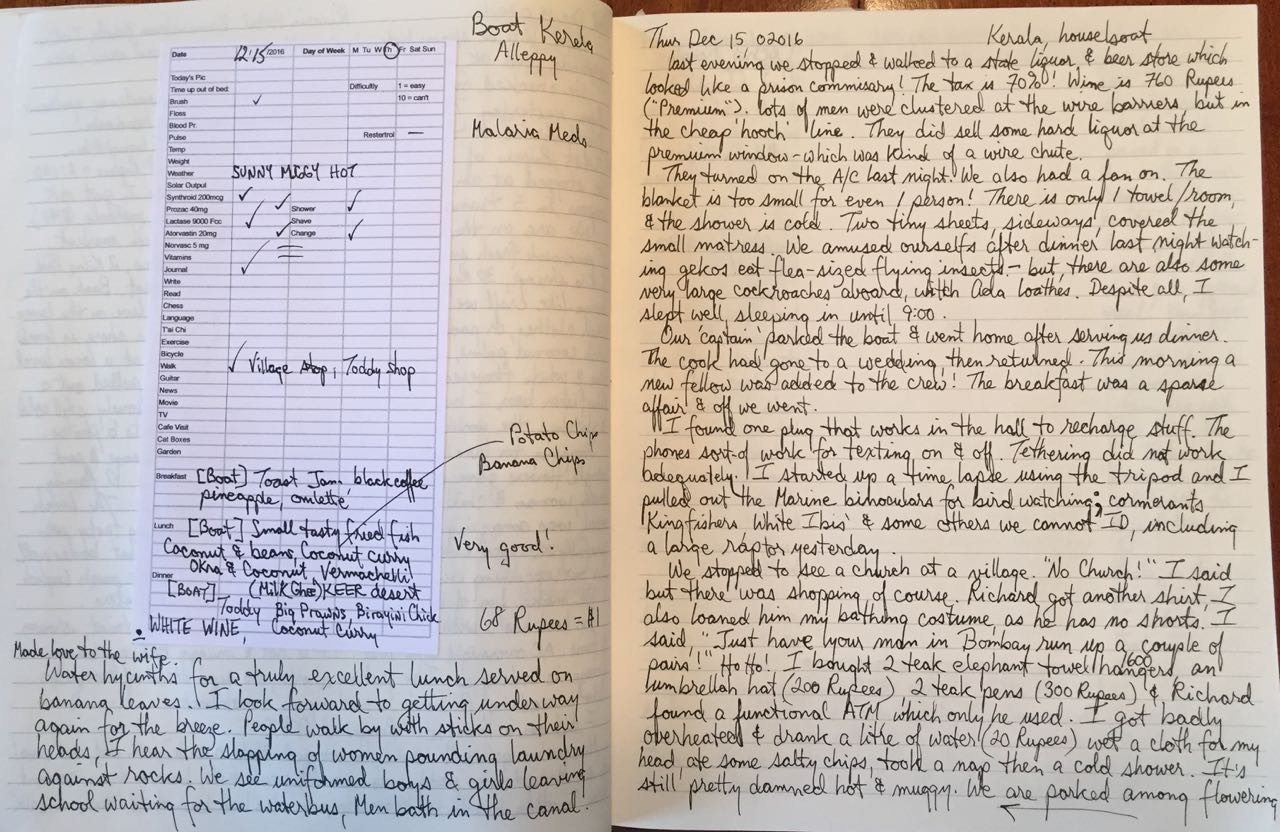 Boat Kerela
Alleppy
Date 12/15/2016 Day of Week M Tu W Th Fr Sat Sun
Today's Pic
Time up out of bed: Difficultly 1 = easy
Brush ✓ 10 = can't
Floss
Blood Pr.
Pulse Restertrol —
Malaria Meds
Temp
Weight
Weather SUNNY MUGGY HOT
Solar Output
Synthroid 200mcg ✓
Prozac 40mg ✓ Shower ✓
Lactase 9000 Fcc ✓ Shave
Atorvastin 20mg ✓ Change ✓
Norvasc 5 mg
Vitamins
Journal ✓
Write
Read
Chess
Language
T'ai Chi
Exercise
Bicycle
Walk ✓ Village stop, Toddy Shop
Guitar
News
Movie
TV
Cafe Visit
Cat Boxes
Garden
Potato Chips
Banana Chips
Breakfast [Boat] Toast Jam black coffee
pineapple, omlette
Lunch [Boat] Small tasty fried fish
Coconut & beans, Coconut curry
Okra & Coconut, Vermachelli
Very good!
Dinner (Milk Ghee) KEER desert
[BOAT] Toddy Big Prawns Birayini Chick
• WHITE WINE, Coconut Curry
68 Rupees = $1
Made love to the wife.
Water hycinths for a truly excellent lunch served on
banana leaves. I look forward to getting under way
again for the breeze. People walk by with sticks on their
heads, I hear the slapping of women pounding laundry
against rocks. We see uniformed boys & girls leaving
school waiting for the waterbus, Men bath in the canal.
Thur Dec 15 02016 Kerala, houseboat
last evening we stopped & walked to a state liquor & beer store which
looked like a prison commisary! The tax is 70%! Wine is 760 Rupees
("Premium"). lots of men were clustered at the wire barriers but in
the cheap 'hooch' line. They did sell some hard liquor at the
premium window - which was kind of a wire chute.
They turned on the A/C last night. We also had a fan on. The
blanket is too small for even 1 person! There is only 1 towel/room,
& the shower is cold. Two tiny sheets, sideways, covered the
small matress. We amused ourselfs after dinner last night watch-
ing gekos eat flea-sized flying insects - but, there are also some
very large cockroaches aboard, witch Ada loathes. Despite all, I
slept well, sleeping in until 9:00.
Our 'captain' parked the boat & went home after serving us dinner.
The cook had gone to a wedding, then returned. This morning a
new fellow was added to the crew! The breakfast was a sparse
affair & off we went.
I found one plug that works in the hall to recharge stuff. The
phones sort-of work for texting on & off. Tethering did not work
adequately. I started up a time lapse using the tripod and I
pulled out the Marine binoculars for bird watching; cormerants
Kingfishers White Ibis' & some others we cannot ID, including
a large raptor yesterday.
We stopped to see a church at a village. "No Church!" I said
but there was shopping of course. Richard got another shirt, I
also loaned him my bathing costume as he has no shorts. I
said, "Just have your man in Bombay run up a couple of
pairs!" Ho Ho! I bought 2 teak elephant towel hangers, (600 an
umbrellah hat (200 Rupees), 2 teak pens (300 Rupees) & Richard
found a functional ATM which only he used. I got badly
overheated & drank a litre of water (20 Rupees) wet a cloth for my
head, ate some salty chips, took a nap then a cold shower. It's
still pretty damned hot & muggy. We are parked among flowering